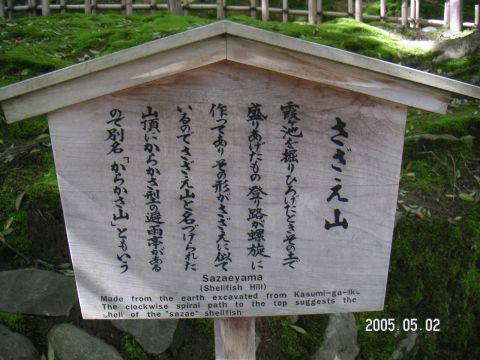 さざえ山
霞ヶ池を掘りひろげたときその土で
盛りあげたもの 登り路が螺旋に
作ってあり その形がさざえに似て
いるのでさざえ山と名づけられた
山頂にからかさ型の避雨亭がある
ので別名「からかさ山」ともいう
Sazaeyama
(Shellfish Hill)
Made from the earth excavated from Kasumi-ga-ike
The clockwise spiral path to the top suggests the
shell of the "sazae" shellfish
2005.05.02